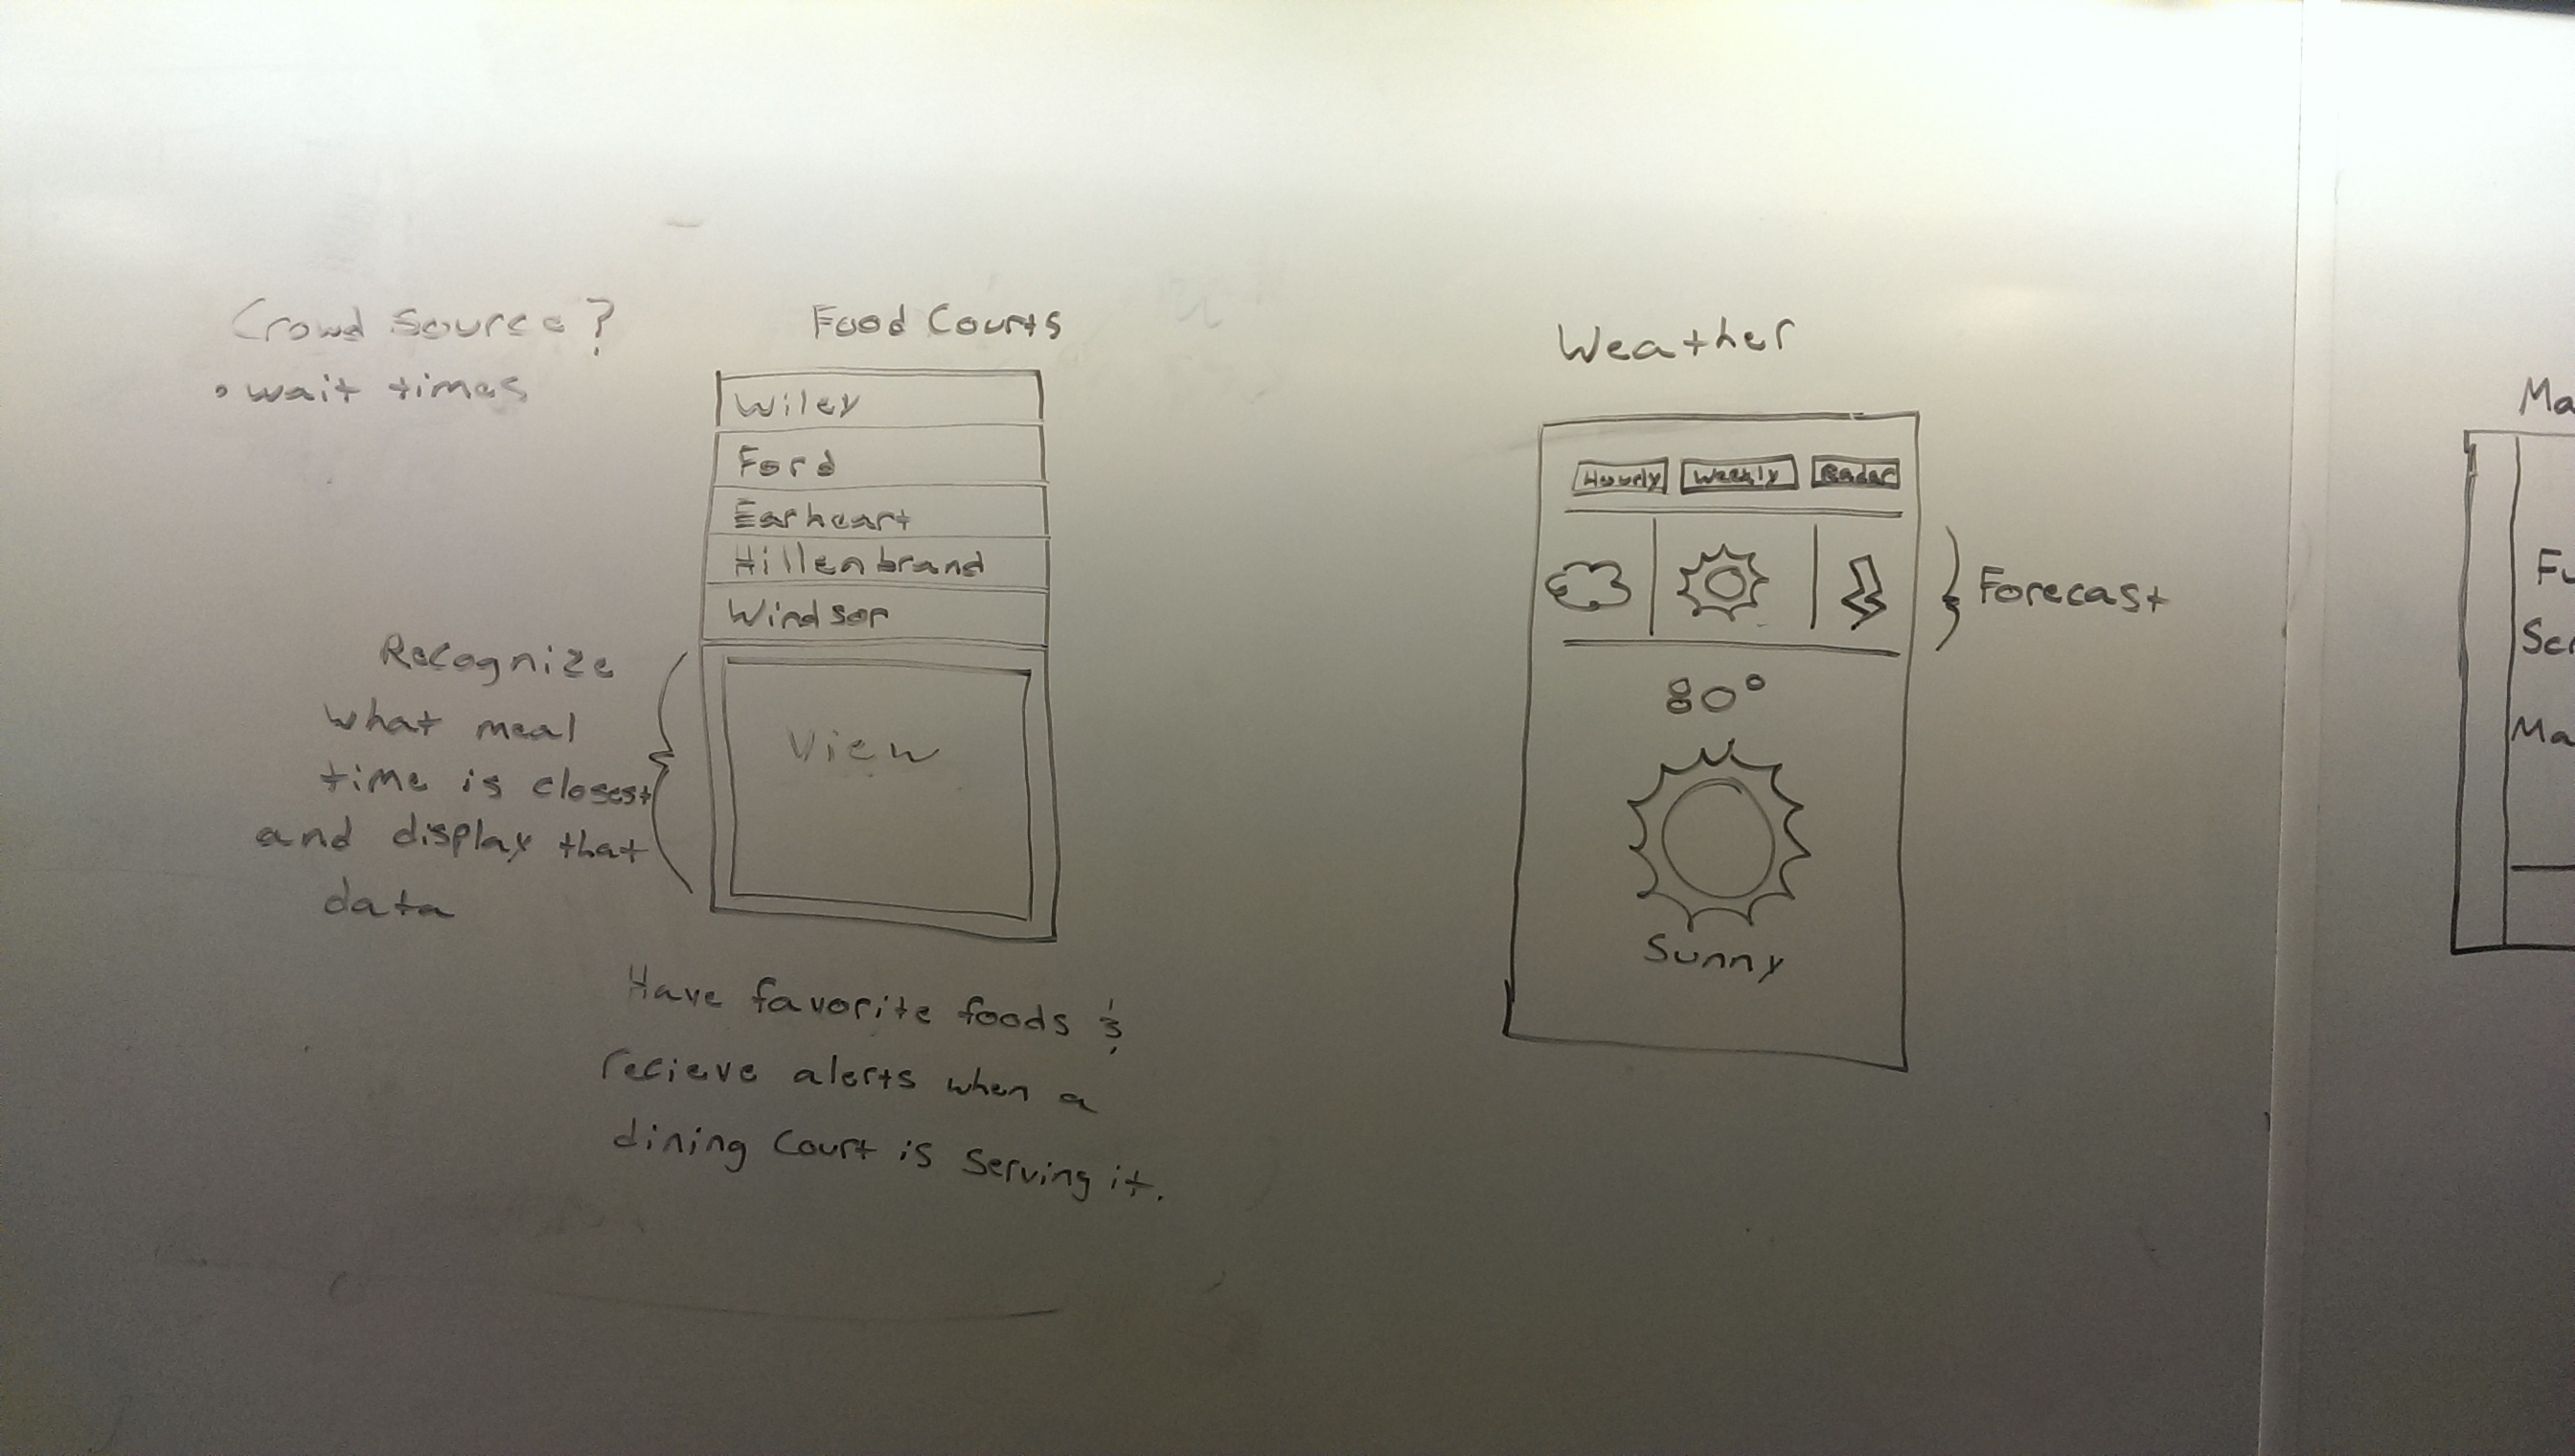 Crowd source?
• wait times
Food Courts
Wiley
Ford
Earheart
Hillenbrand
Windsor
View
Recognize
what meal
time is closest
and display that
data
Have favorite foods &
recieve alerts when a
dining court is serving it.
Weather
Hourly Weekly Radar
Forecast
80°
Sunny
Ma
Fu
Ser
Ma